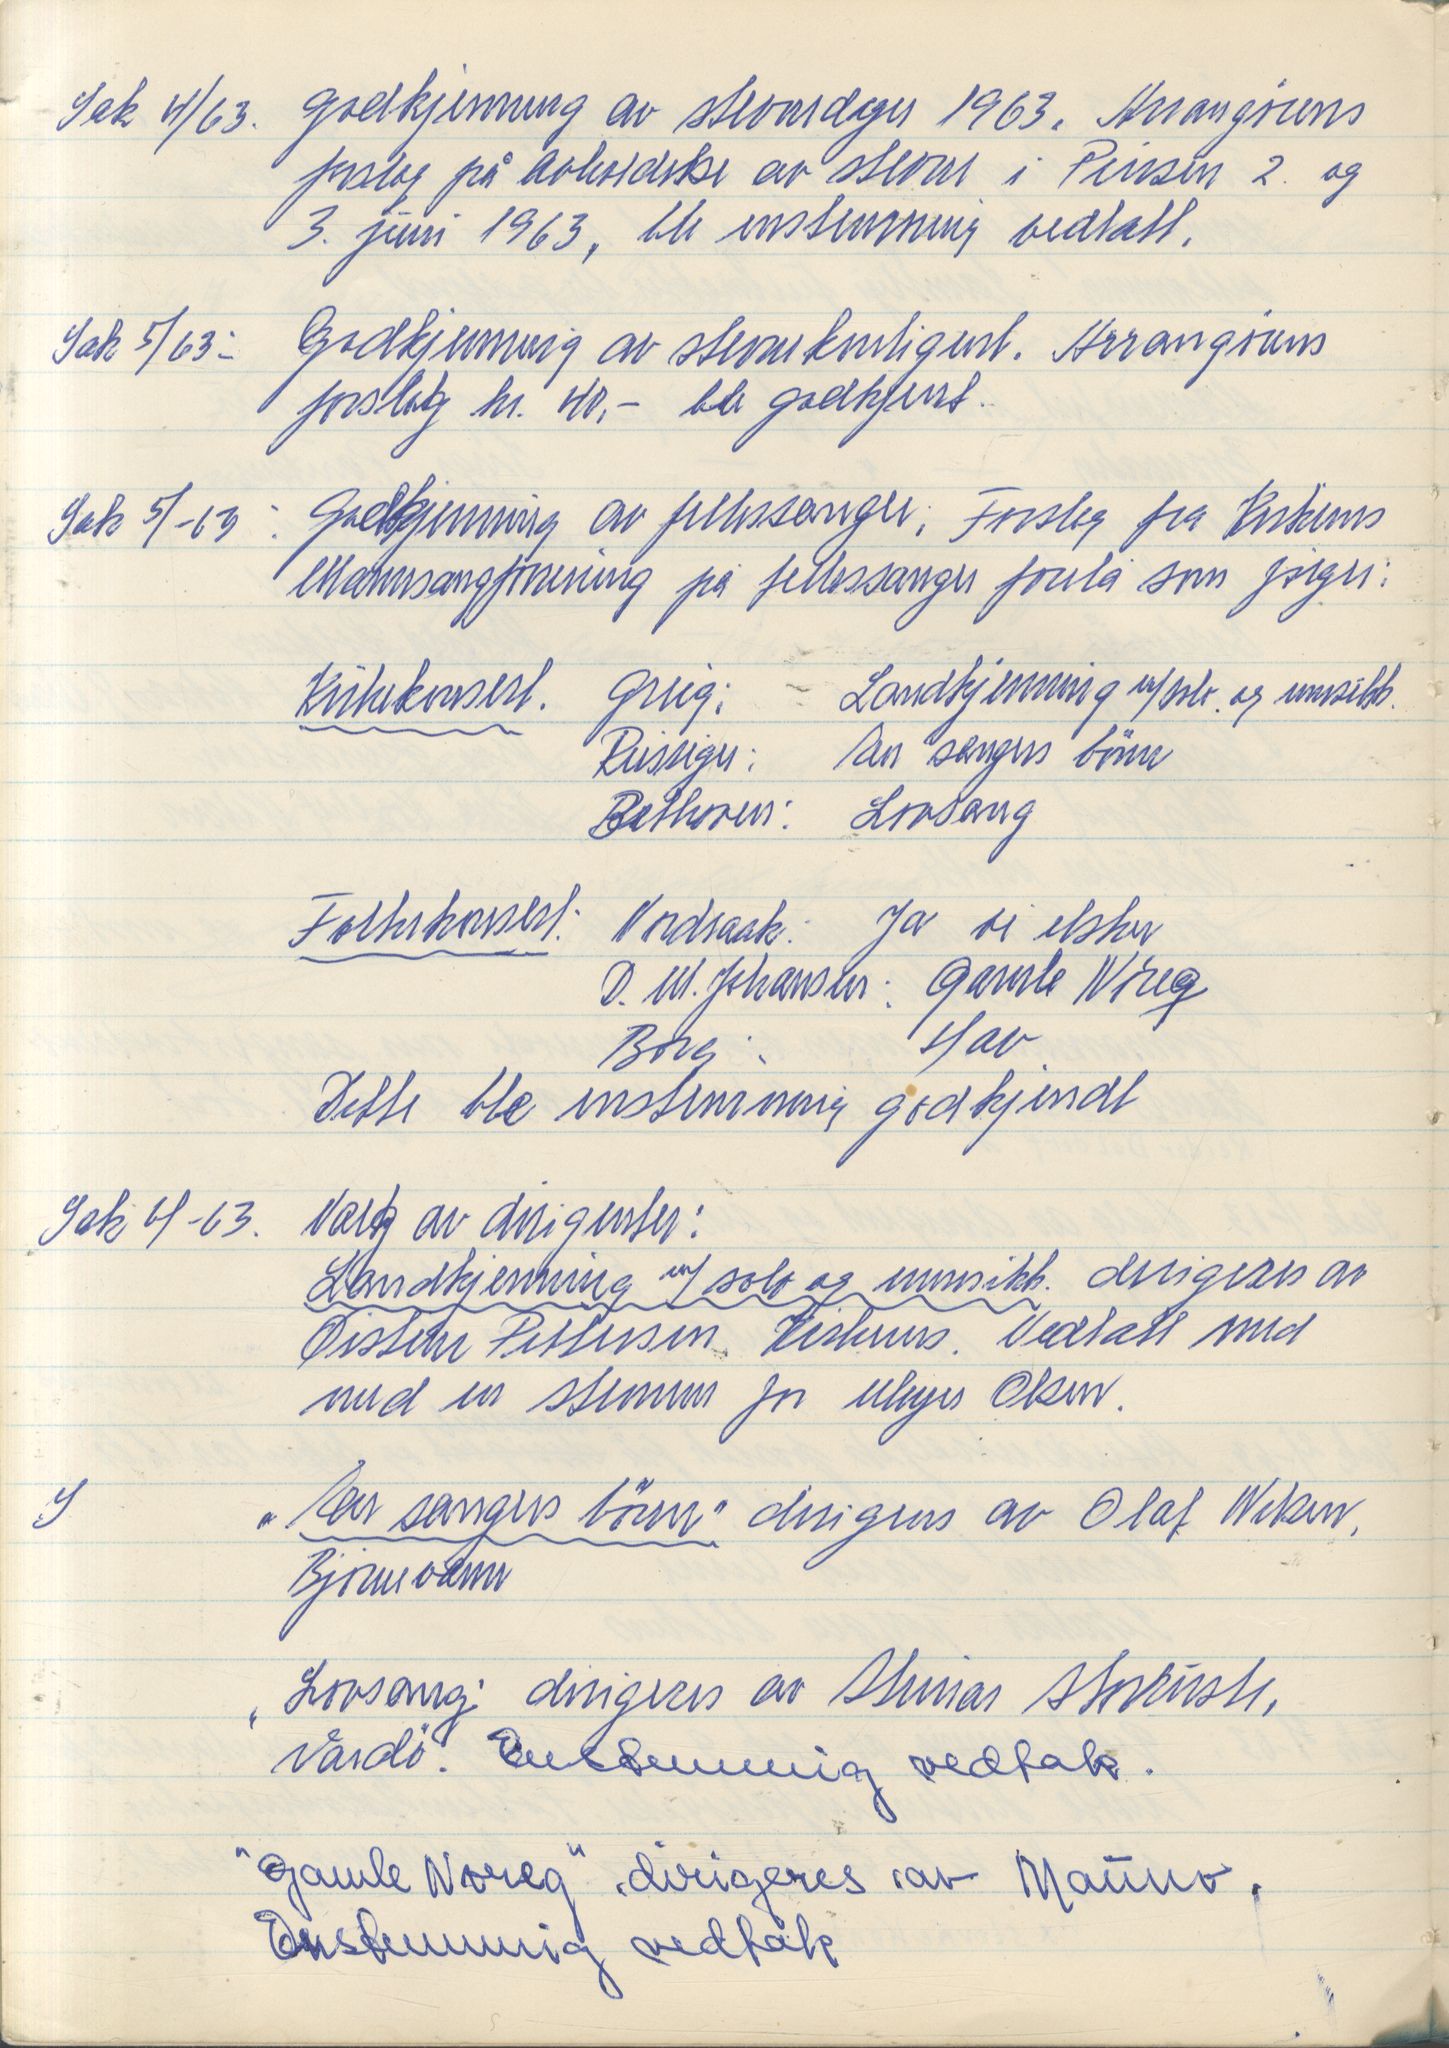 Sak 4/63. Godkjenning av stevnedager 1963. Arrangörens
forslag på avholdelse av stevne i Pinsen 2. og
3. juni 1963, ble enstemmig vedtatt.
Sak 5/63: Godkjenning av stevnekontigent. Arrangörens
forslag kr. 40,- ble godkjent.
Sak 5/-63: Godkjenning av fellessanger. Forslag fra Kirkenes
Mannsangforening på fellessanger forelå som fölger:
Kirkekonsert. Grieg: Landkjenning m/solo. og unnsikk.
Reissiger: En sangers bönn
Bethoven: Lovsang
Folkekonsert: Nordraak: Ja vi elsker
D. M. Johansen: Gamle Noreg
Borg: Hav
Dette ble enstemmig godkjendt
Sak 6/-63. Valg av dirigenter:
Landkjenning m/ solo og unnsikk. dirigeres av
Øistein Pettersen, Kirkenes. Vedtatt med
med en stemme for Olsen.
S "En sangers bönn" dirigeres av Olaf
Björnevann
"Lovsang" dirigeres av
Vardö. Enstemmig vedtak.
"Gamle Noreg" dirigeres av Mauno.
Enstemmig vedtak